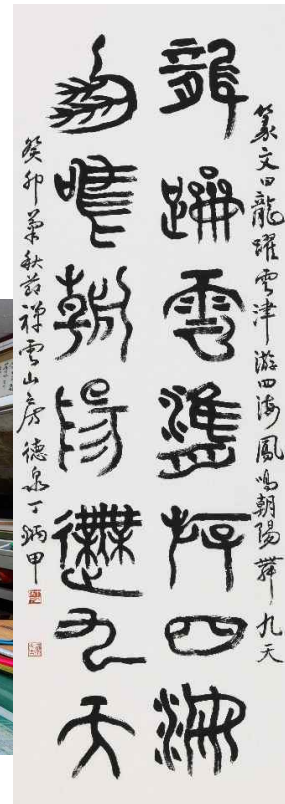 篆文曰龍躍雲津游四海鳳鳴朝陽舞九天
龍躍雲津游四海
鳳鳴朝陽舞九天
癸卯菊秋禅雲山房德泉丁炳甲